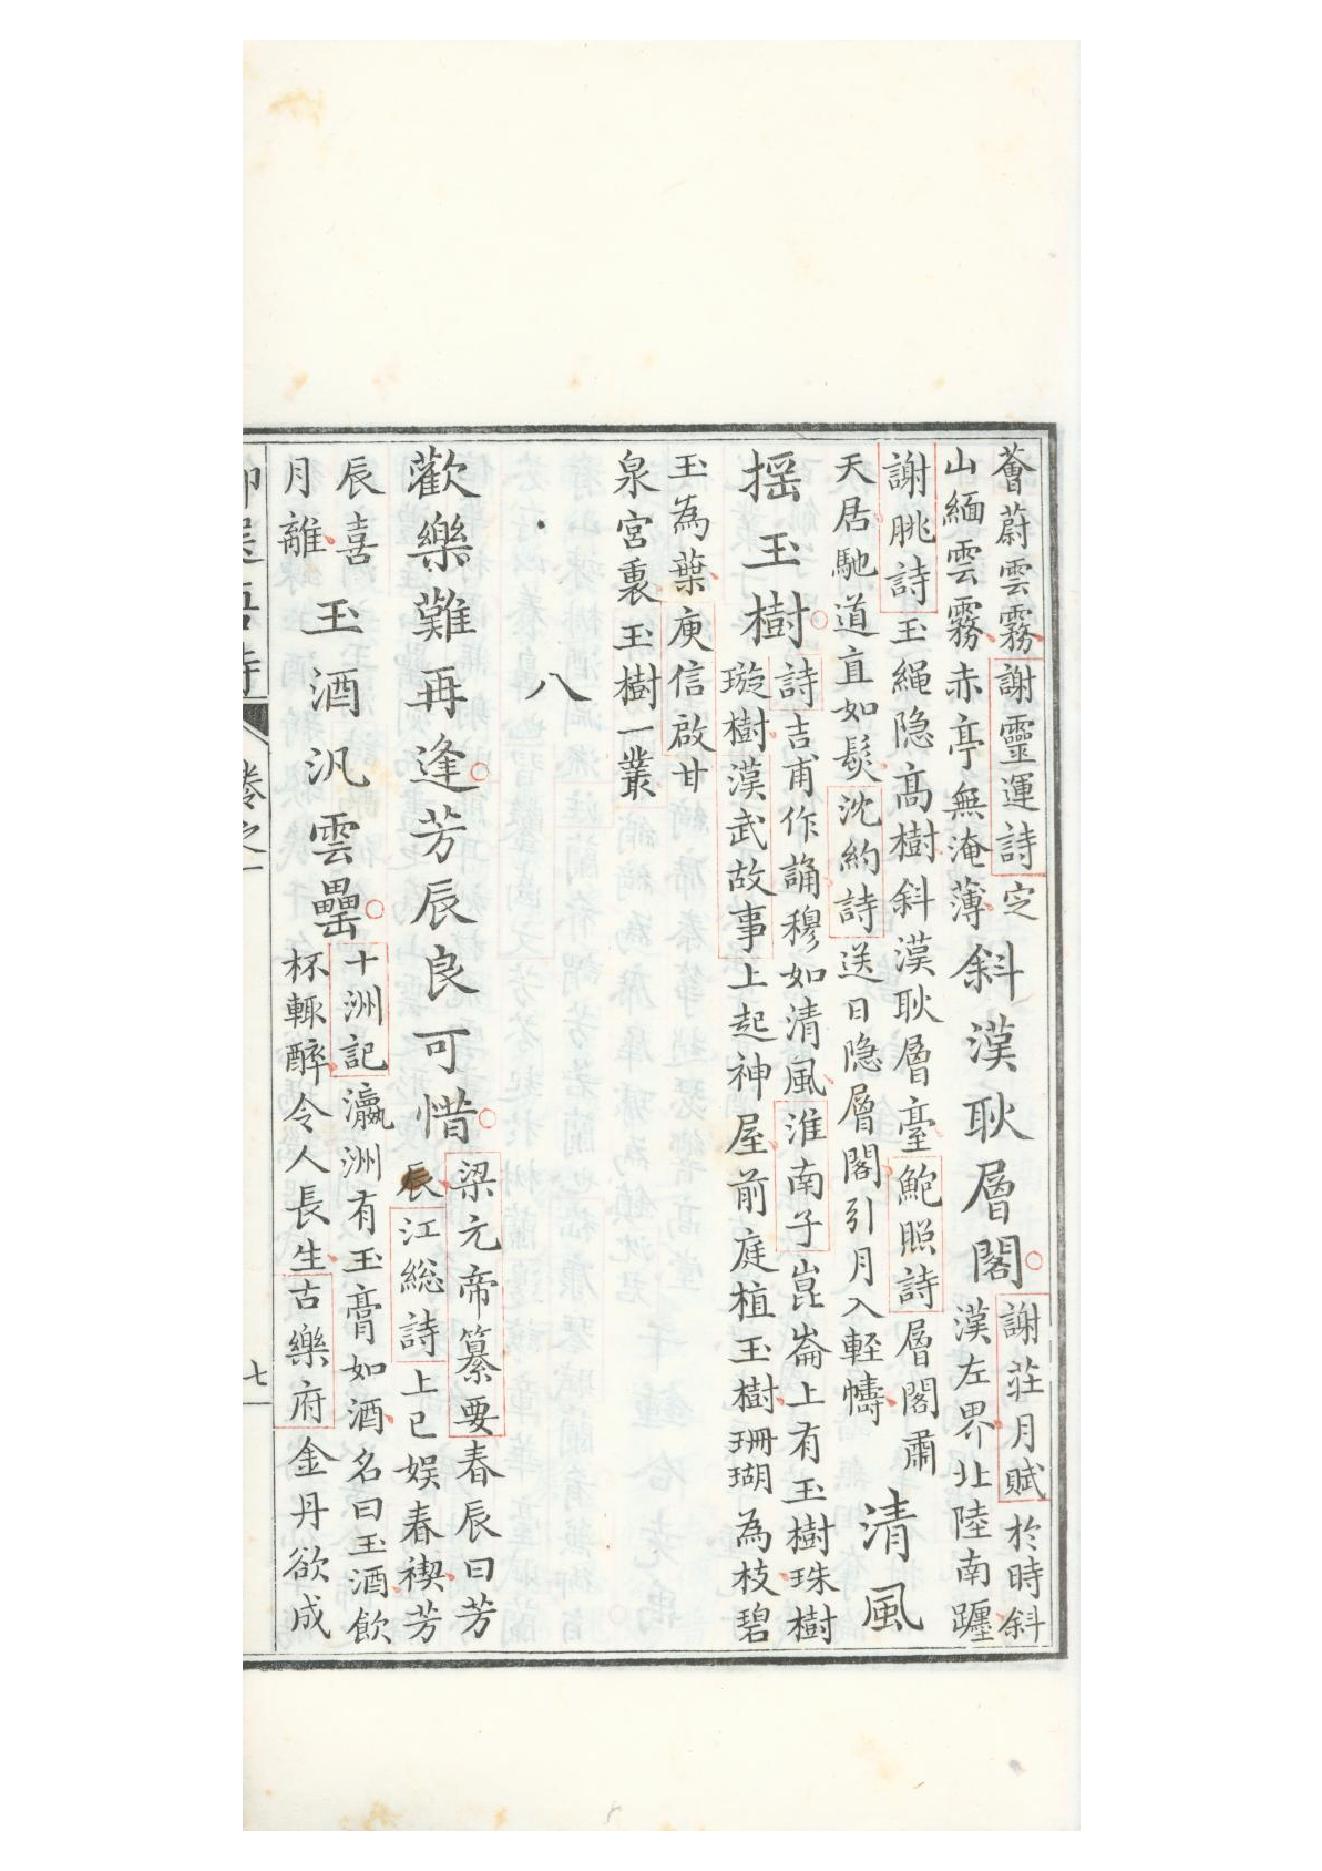 薈蔚雲霧謝靈運詩定
山緬雲霧赤亭無淹薄
斜漢耿層閣
謝莊月賦於時斜
漢左界北陸南躔
謝朓詩玉繩隐髙樹斜漢耿層臺鮑照詩層閣肅
天居馳道直如髮沈約詩送日隐層閣引月入輕幬
清風
揺玉樹
詩吉甫作誦穆如清風淮南子崑崙上有玉樹珠樹
璇樹漢武故事上起神屋前庭植玉樹珊瑚為枝碧
玉為葉庾信啟甘
泉宮裏玉樹一叢
八
歡樂難再逢芳辰良可惜
梁元帝纂要春辰曰芳
辰江総詩上巳娱春禊芳
辰喜
月離
玉酒汎雲罍
十洲記瀛洲有玉膏如酒名曰玉酒飲
杯輙醉令人長生古樂府金丹欲成
卷之一
七